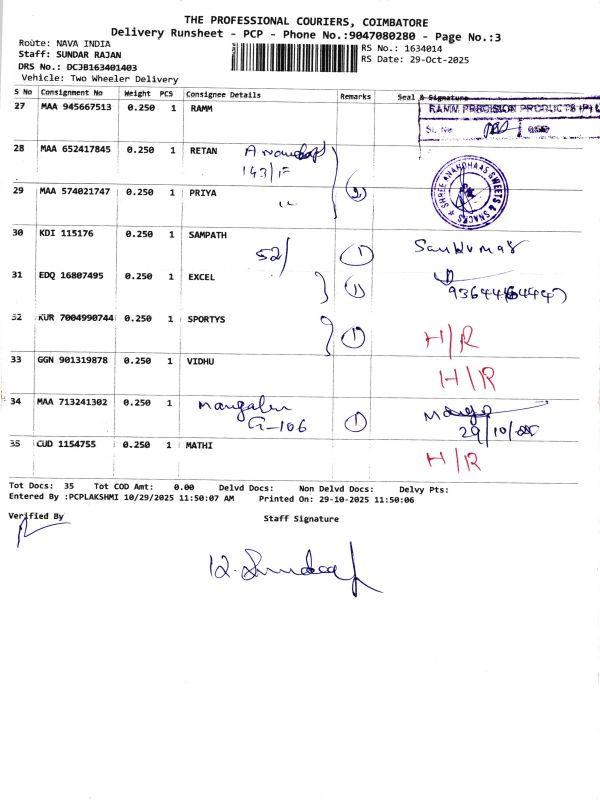 THE PROFESSIONAL COURIERS, COIMBATORE
Delivery Runsheet - PCP - Phone No.:9047080280 - Page No.:3
Route: NAVA INDIA
Staff: SUNDAR RAJAN
DRS No.: DCJB163401403
Vehicle: Two Wheeler Delivery
RS No.: 1634014
RS Date: 29-Oct-2025
S No Consignment No Weight PCS Consignee Details Remarks Seal & Signature
27 MAA 945667513 0.250 1 RAMM
RAMM PRECISION PRODUCTS (P) L
Sr. No
28 MAA 652417845 0.250 1 RETAN
143/F
29 MAA 574021747 0.250 1 PRIYA
2
SHREE ANANDHAAS SWEETS & SNACKS
30 KDI 115176 0.250 1 SAMPATH
52/ 1
31 EDQ 16807495 0.250 1 EXCEL
1
32 KUR 7004990744 0.250 1 SPORTYS
1 H/R
33 GGN 901319878 0.250 1 VIDHU
H/R
34 MAA 713241302 0.250 1
G-106 1
29/10/
35 CUD 1154755 0.250 1 MATHI
H/R
Tot Docs: 35 Tot COD Amt: 0.00 Delvd Docs: Non Delvd Docs: Delvy Pts:
Entered By :PCPLAKSHMI 10/29/2025 11:50:07 AM Printed On: 29-10-2025 11:50:06
Verified By
Staff Signature